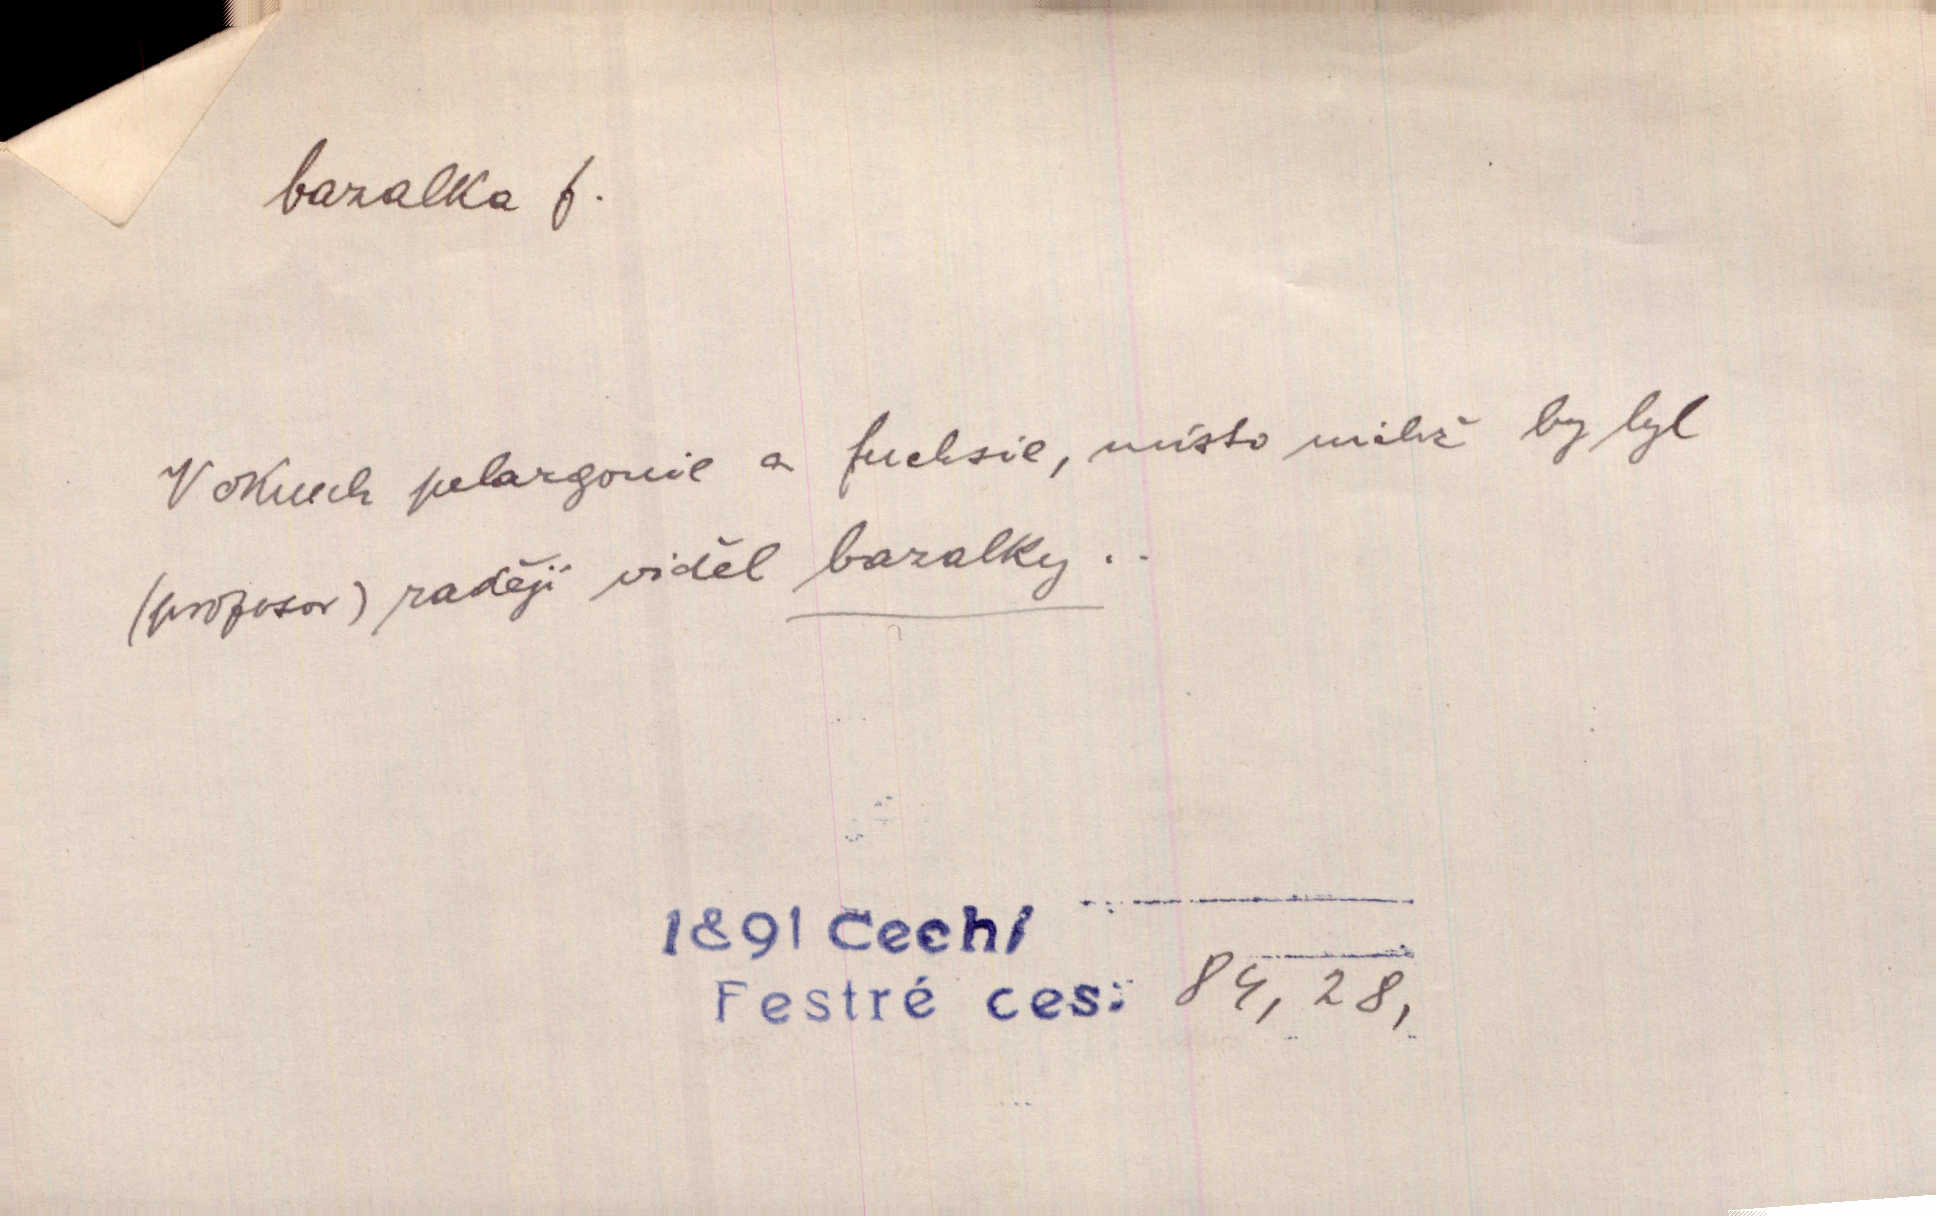 bazalka f.
V oknech pelargonie a fuchsie, místo nichž by byl
(profesor) raději viděl bazalky . .
1891 Čech/
Festré ces: 84, 28,